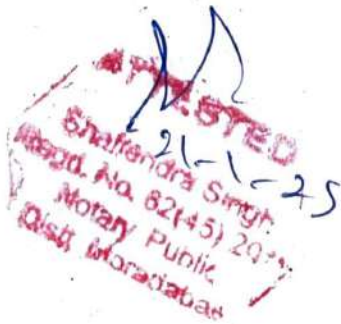 ATTESTED
21-1-25
Shailendra Singh
Regd. No. 82(45) 20
Notary Public
Distt. Moradabad